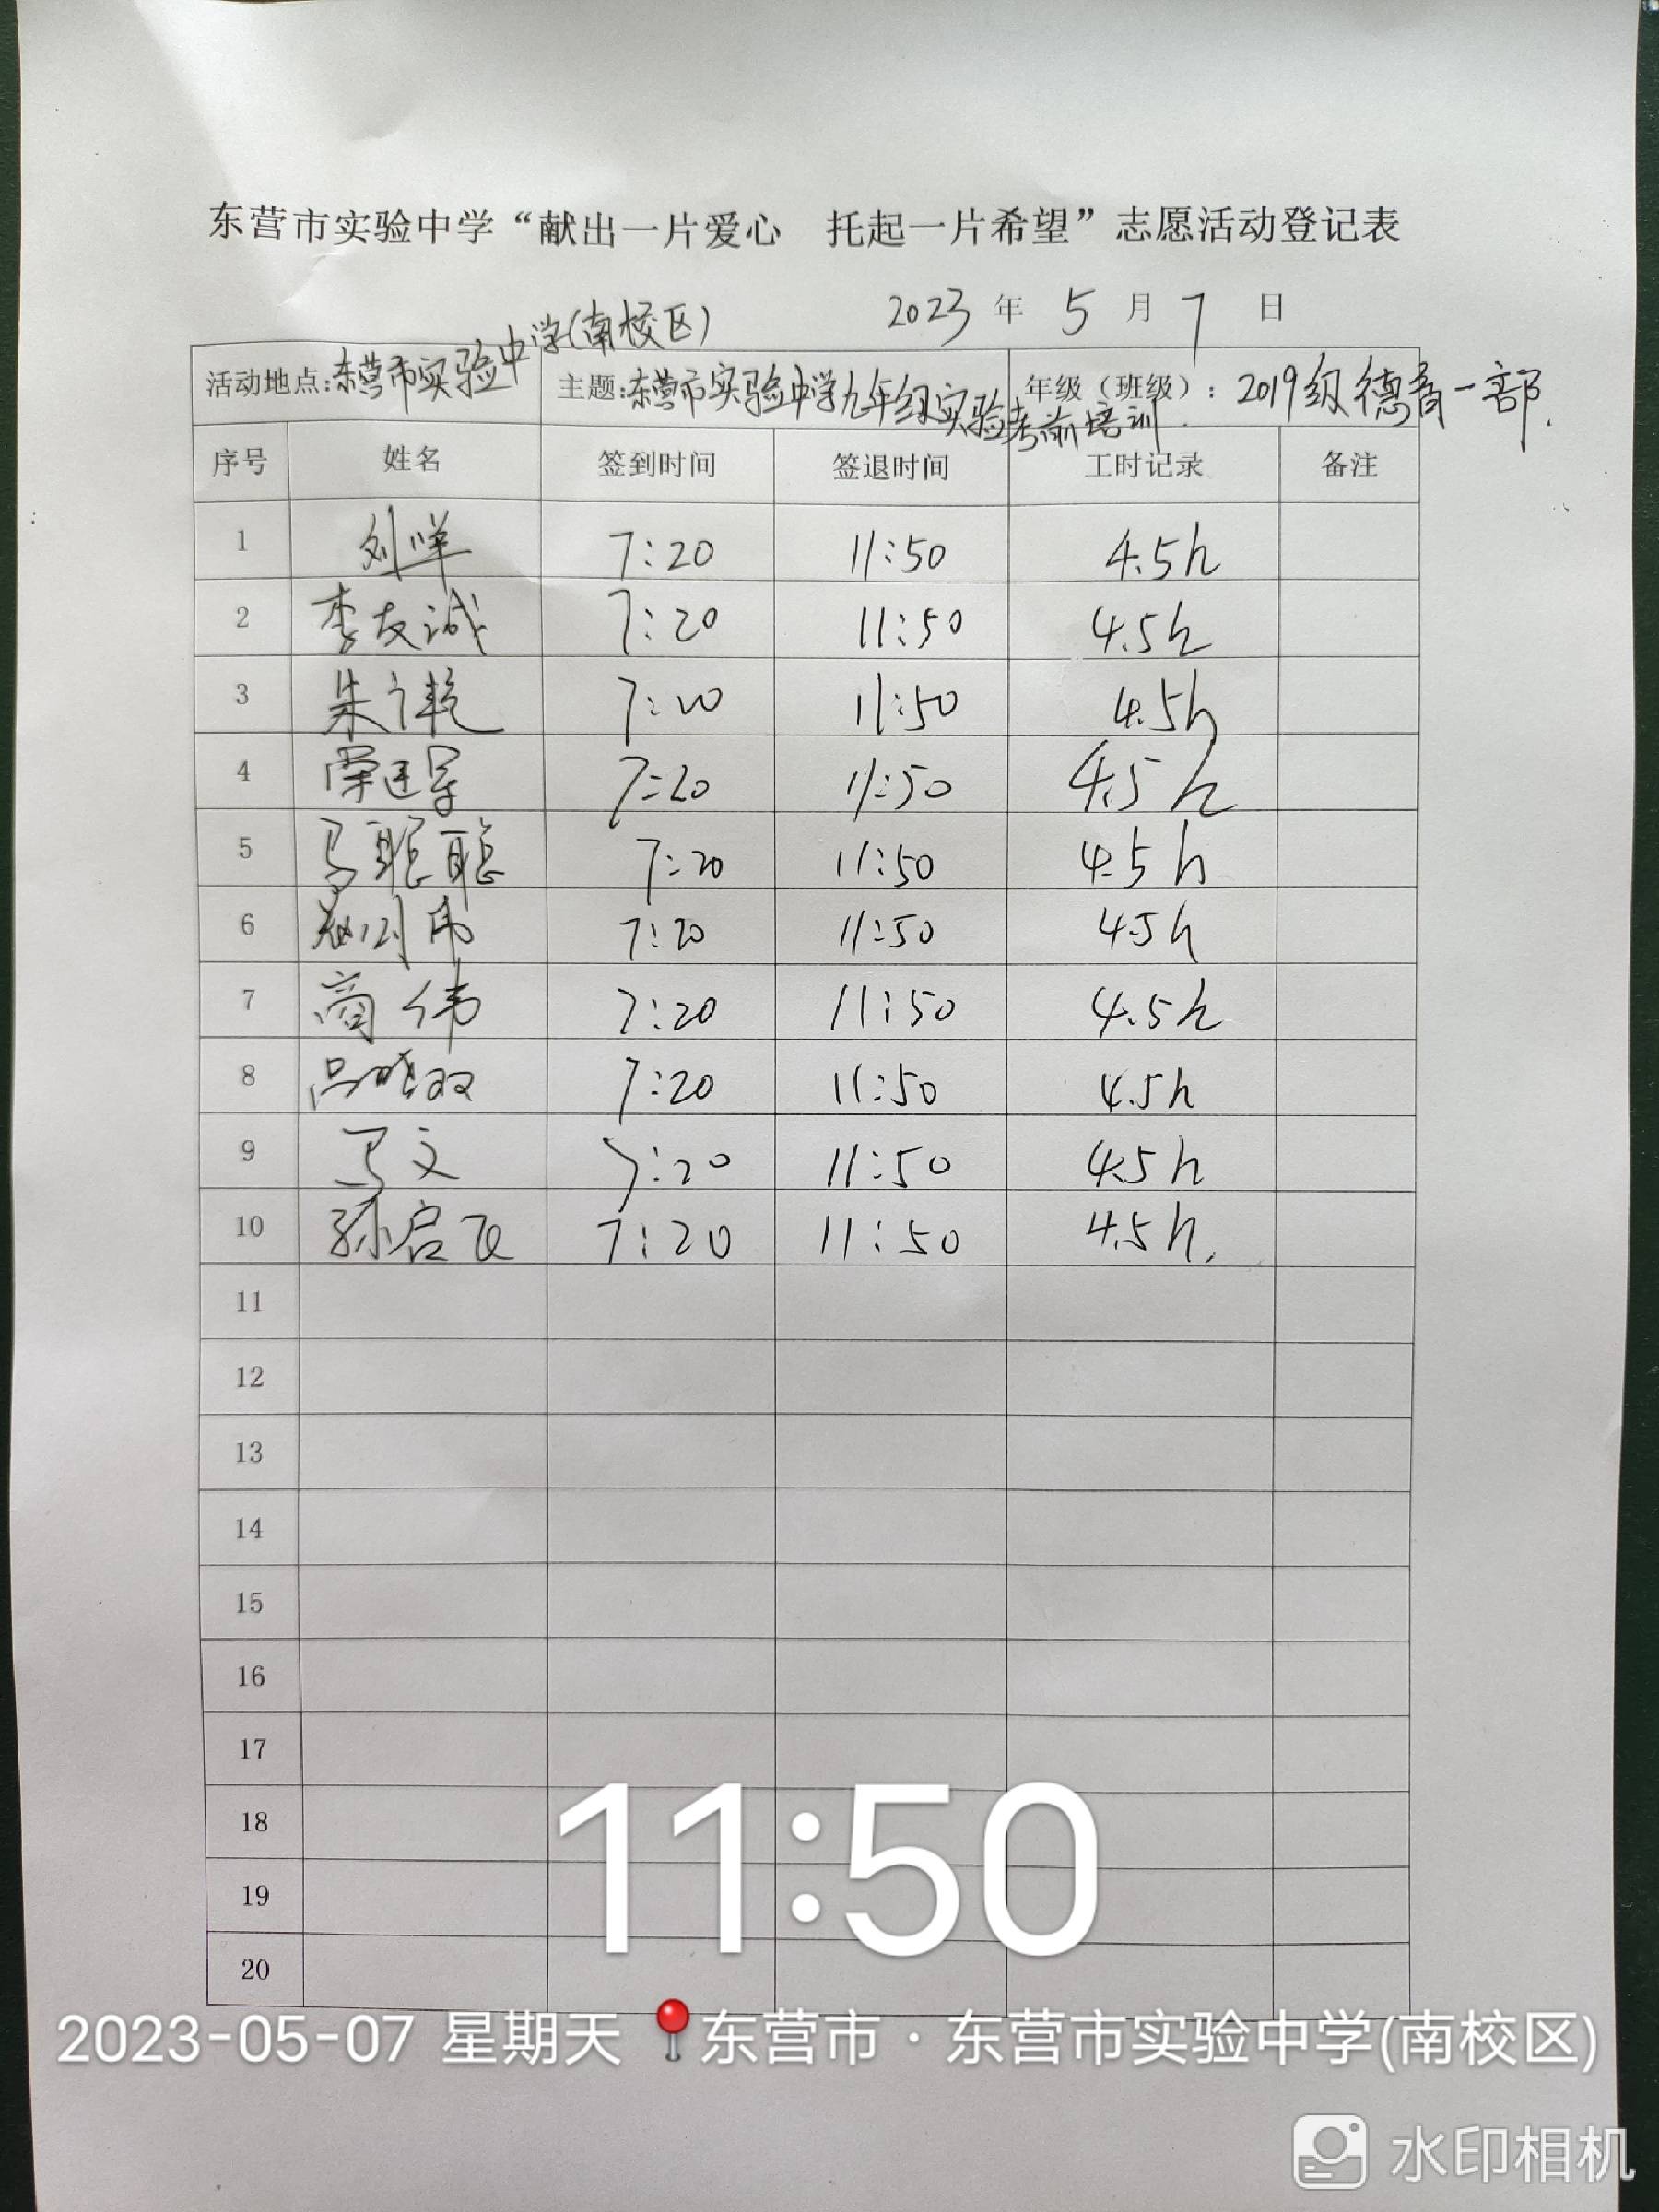 东营市实验中学“献出一片爱心 托起一片希望”志愿活动登记表
2023 年 5 月 7 日
活动地点:东营市实验中学(南校区) 主题:东营市实验中学九年级实验考前培训 年级（班级）: 2019级德育一部.
序号 姓名 签到时间 签退时间 工时记录 备注
1 刘 7:20 11:50 4.5h
2 李友诚 7:20 11:50 4.5h
3 朱 7:20 11:50 4.5h
4 7:20 11:50 4.5h
5 马聪聪 7:20 11:50 4.5h
6 7:20 11:50 4.5h
7 商伟 7:20 11:50 4.5h
8 吕晓双 7:20 11:50 4.5h
9 马文 7:20 11:50 4.5h
10 孙启飞 7:20 11:50 4.5h.
11
12
13
14
15
16
17
18
19
20
11:50
2023-05-07 星期天 东营市·东营市实验中学(南校区)
水印相机